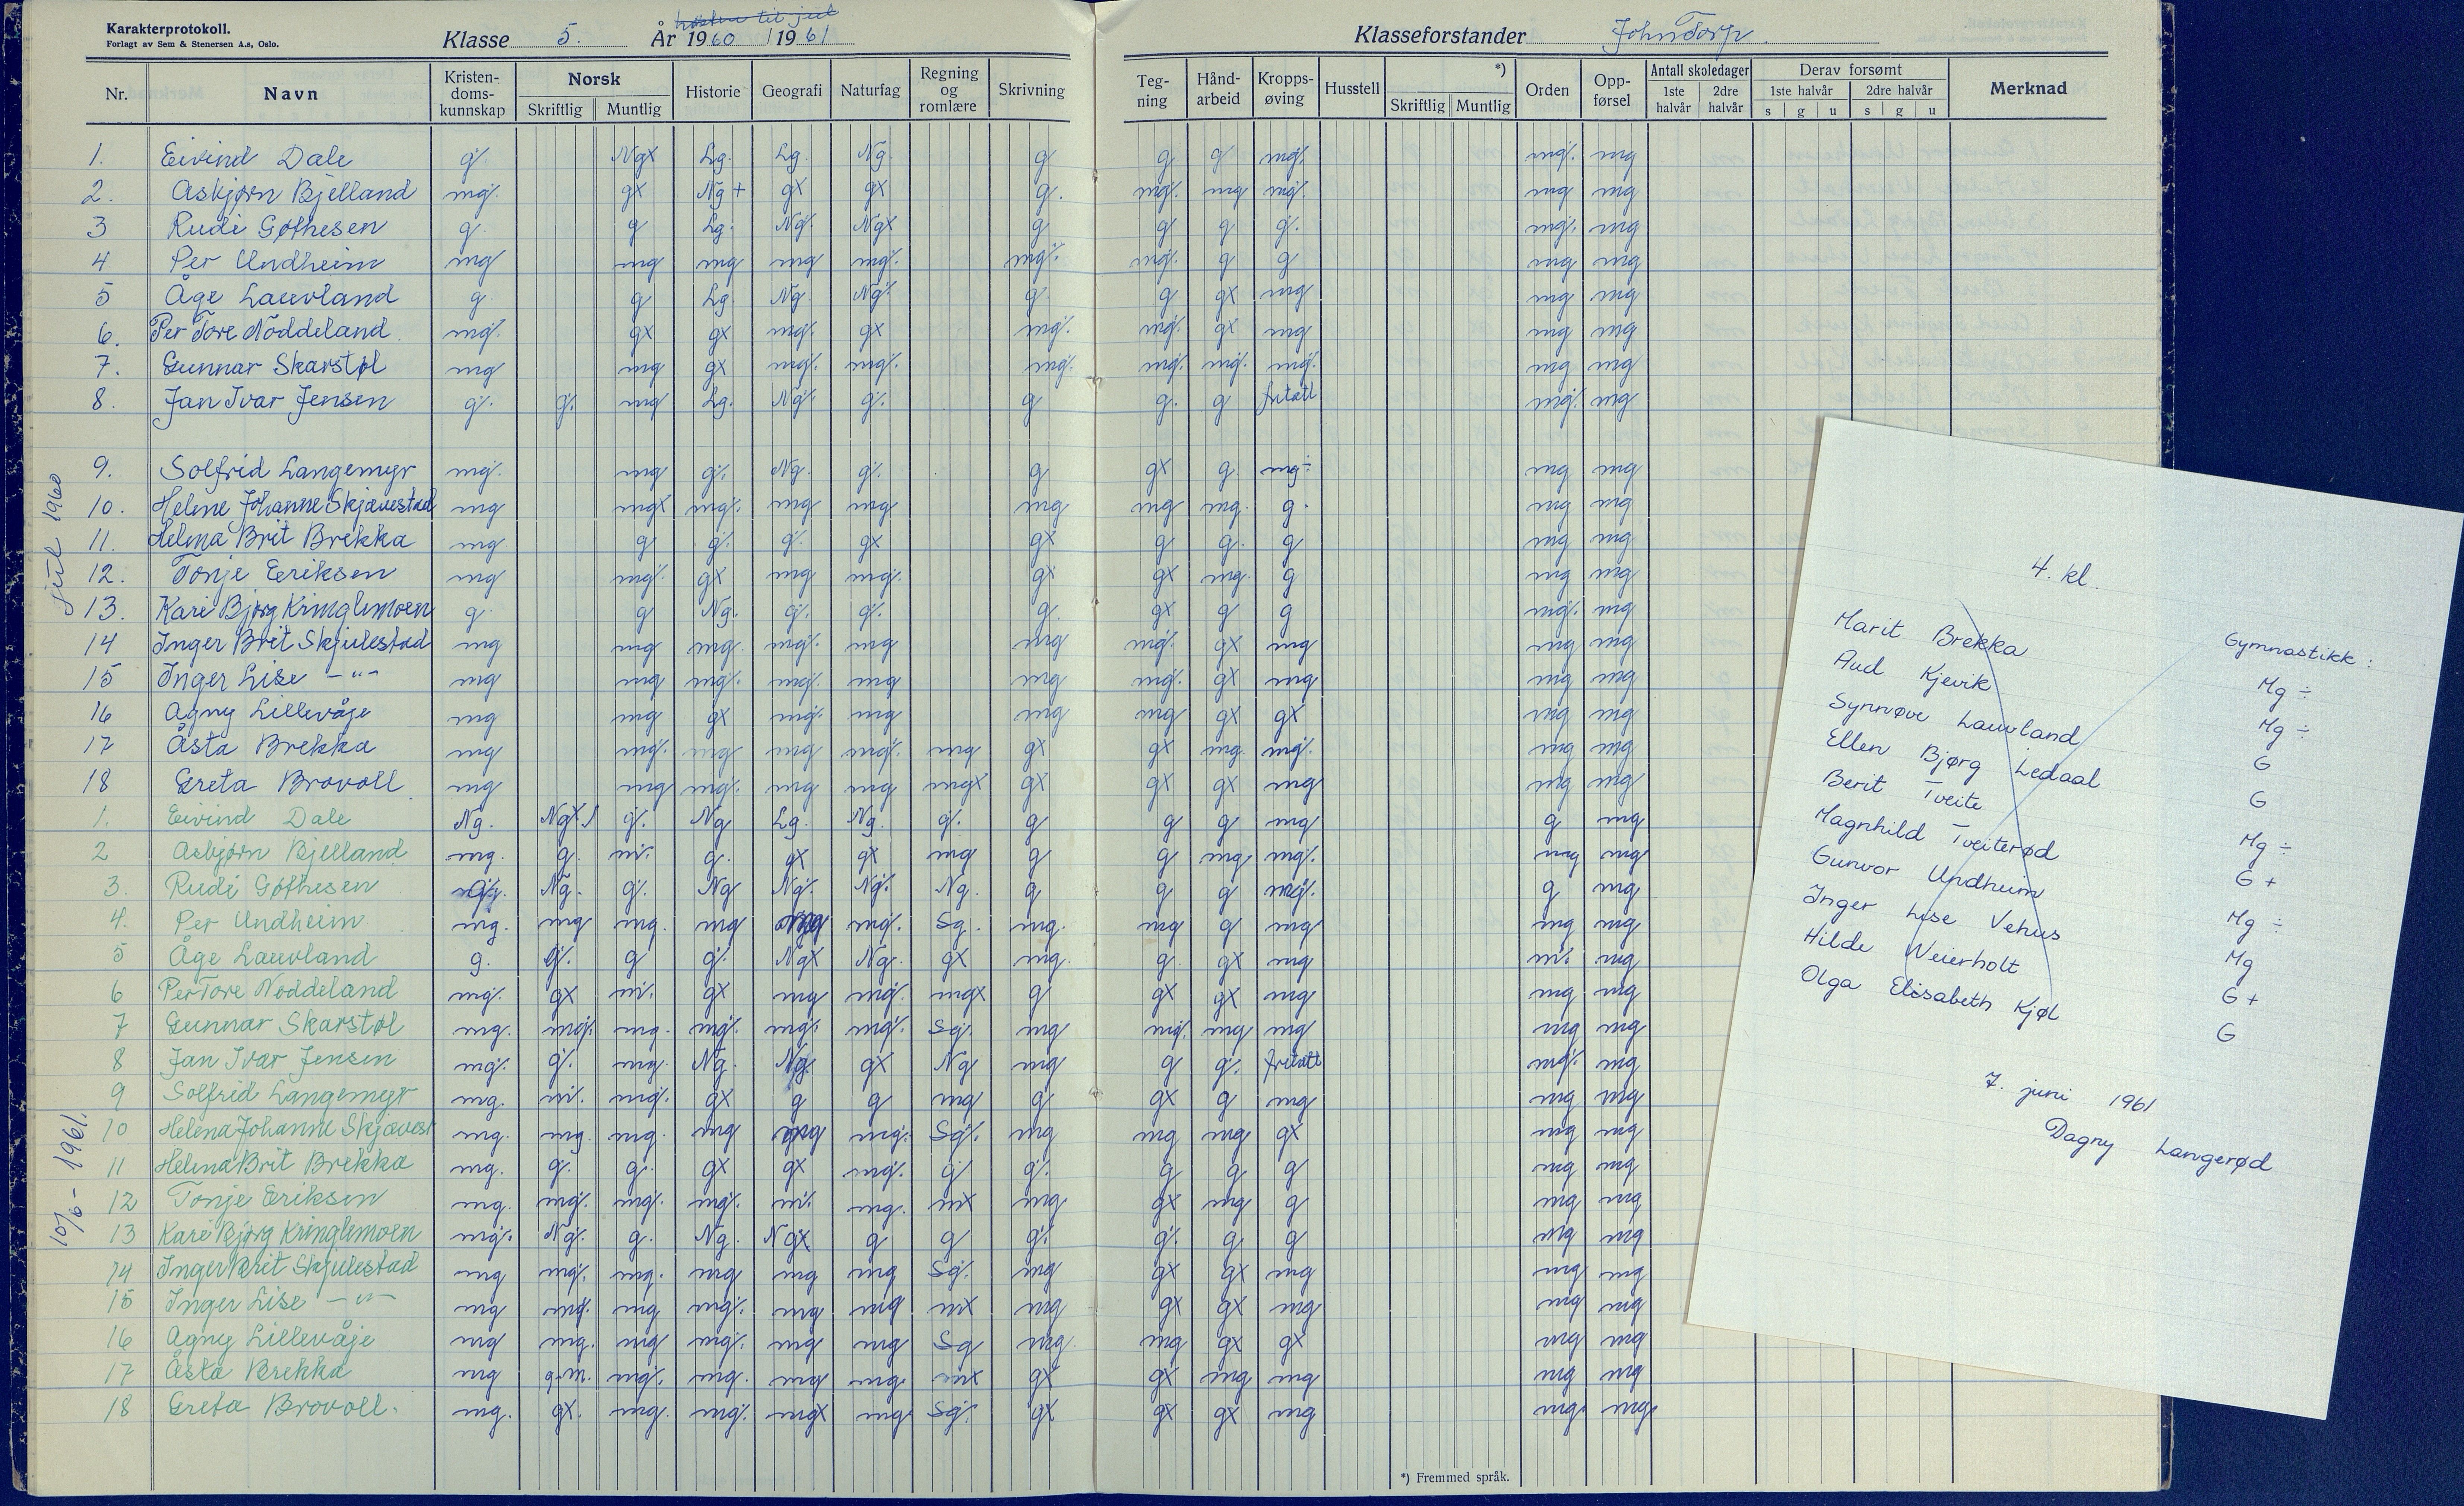 Karakterprotokoll.
Forlagt av Sem & Stenersen A.s, Oslo.
Klasse 5. År 1960 / 1961
høsten til jul
Klasseforstander John Torp.
Nr. Navn Kristendomskunnskap Norsk Skriftlig Muntlig Historie Geografi Naturfag Regning og romlære Skrivning Tegning Håndarbeid Kroppsøving Husstell *) Skriftlig Muntlig Orden Oppførsel Antall skoledager 1ste halvår 2dre halvår Derav forsømt 1ste halvår s g u 2dre halvår s g u Merknad
jul 1960
1. Eivind Dale g÷ Ngx Lg. Lg. Ng. g g g mg÷ mg÷ mg
2. Asbjørn Bjelland mg÷ gx Ng+ gx gx g. mg÷ mg mg÷ mg mg
3 Rudi Gøthesen g. g Lg. Ng÷ Ngx g g g g÷ mg÷ mg
4. Per Undheim mg mg mg mg mg÷ mg÷ mg÷ g g mg mg
5 Åge Lauvland g. g Lg. Ng Ng÷ g. g gx mg mg mg
6. Per Tore Nøddeland mg÷ gx gx mg÷ gx mg÷ mg÷ gx mg mg mg
7. Gunnar Skarstøl mg mg gx mg÷ mg÷ mg÷ mg÷ mg÷ mg÷ mg mg
8. Jan Ivar Jensen g÷ g÷ mg Lg. Ng÷ g÷ g g. g fritatt mg÷ mg
9. Solfrid Langemyr mg÷ mg g÷ Ng. g÷ g gx g. mg÷ mg mg
10. Helene Johanne Skjævestad mg mgx mg÷ mg mg mg mg mg. g. mg mg
11. Helena Brit Brekka mg g g÷ g÷ gx gx g g. g mg mg
12. Tonje Eriksen mg mg÷ gx mg mg÷ gx gx mg. g mg mg
13. Kari Bjørg Kringlemoen g. g Ng. g÷ g÷ g. gx g g mg÷ mg
14 Inger Brit Skjulestad mg mg mg. mg÷ mg mg mg÷ gx mg mg mg
15 Inger Lise -"- mg mg mg÷ mg÷ mg mg mg÷ gx mg mg mg
16 Agny Lillevåje mg mg gx mg÷ mg mg mg gx gx mg mg
17 Åsta Brekka mg mg÷ mg mg mg÷ mg gx gx mg. mg÷ mg mg
18 Greta Brovoll mg mg mg÷ mg mg mgx gx gx gx mg mg mg
10/6-1961.
1. Eivind Dale Ng. Ngx g÷ Ng Lg. Ng. g÷ g g g mg g mg
2 Asbjørn Bjelland mg. g. m÷ g. gx gx mg g g mg mg÷ mg mg
3. Rudi Gøthesen Ng. g÷ Ng Ng÷ Ng÷ Ng. g g g mg÷ g mg
4. Per Undheim mg. mg mg. mg mg÷ Sg. mg. mg g mg mg mg
5 Åge Lauvland g. g÷ g g÷ Ngx Ng. gx mg. g. gx mg m÷ mg
6 Per Tore Nøddeland mg÷ gx m÷ gx mg mg÷ mgx g gx gx mg mg mg
7 Gunnar Skarstøl mg. mg÷ mg. mg÷ mg÷ mg÷ Sg÷ mg mg÷ mg mg mg mg
8 Jan Ivar Jensen mg÷ g÷ mg. Ng. Ng. gx Ng mg g g÷ fritatt mg÷ mg
9 Solfrid Langemyr mg. m÷ mg÷ gx g g mg g gx g mg mg mg
10 Helena Johanne Skjævest mg. mg. mg. mg mg÷ Sg÷ mg mg mg gx mg mg
11 Helena Brit Brekka mg. g÷ g. gx gx mg÷ g g÷ g g g mg mg
12 Tonje Eriksen mg. mg÷ mg÷ mg÷ m÷ mg. mx mg gx mg g mg mg
13 Kari Bjørg Kringlemoen mg÷ Ng÷ g. Ng. Ngx g g g÷ g÷ g g mg mg
14 Inger Brit Skjulestad mg mg÷ mg. mg mg mg Sg÷ mg gx gx mg mg mg
15 Inger Lise -"- mg mg. mg mg÷ mg mg mx mg gx gx mg mg mg
16 Agny Lillevåje mg mg. mg mg÷ mg mg Sg mg. mg gx gx mg mg
17 Åsta Brekka mg g-m. mg÷ mg. mg mg. mx gx gx mg mg mg mg
18 Greta Brovoll. mg. gx. mg. mg÷ mgx mg Sg÷ gx gx gx mg mg mg
*) Fremmed språk.
4. kl.
Gymnastikk:
Marit Brekka Mg ÷
Aud Kjevik Mg ÷
Synnøve Lauvland G
Ellen Bjørg Ledaal G
Berit Tveite Mg ÷
Magnhild Tveiterød G +
Gunvor Undheim Mg ÷
Inger Lise Vehus Mg
Hilde Weierholt G +
Olga Elisabeth Kjøl G
7. juni 1961
Dagny Langerød